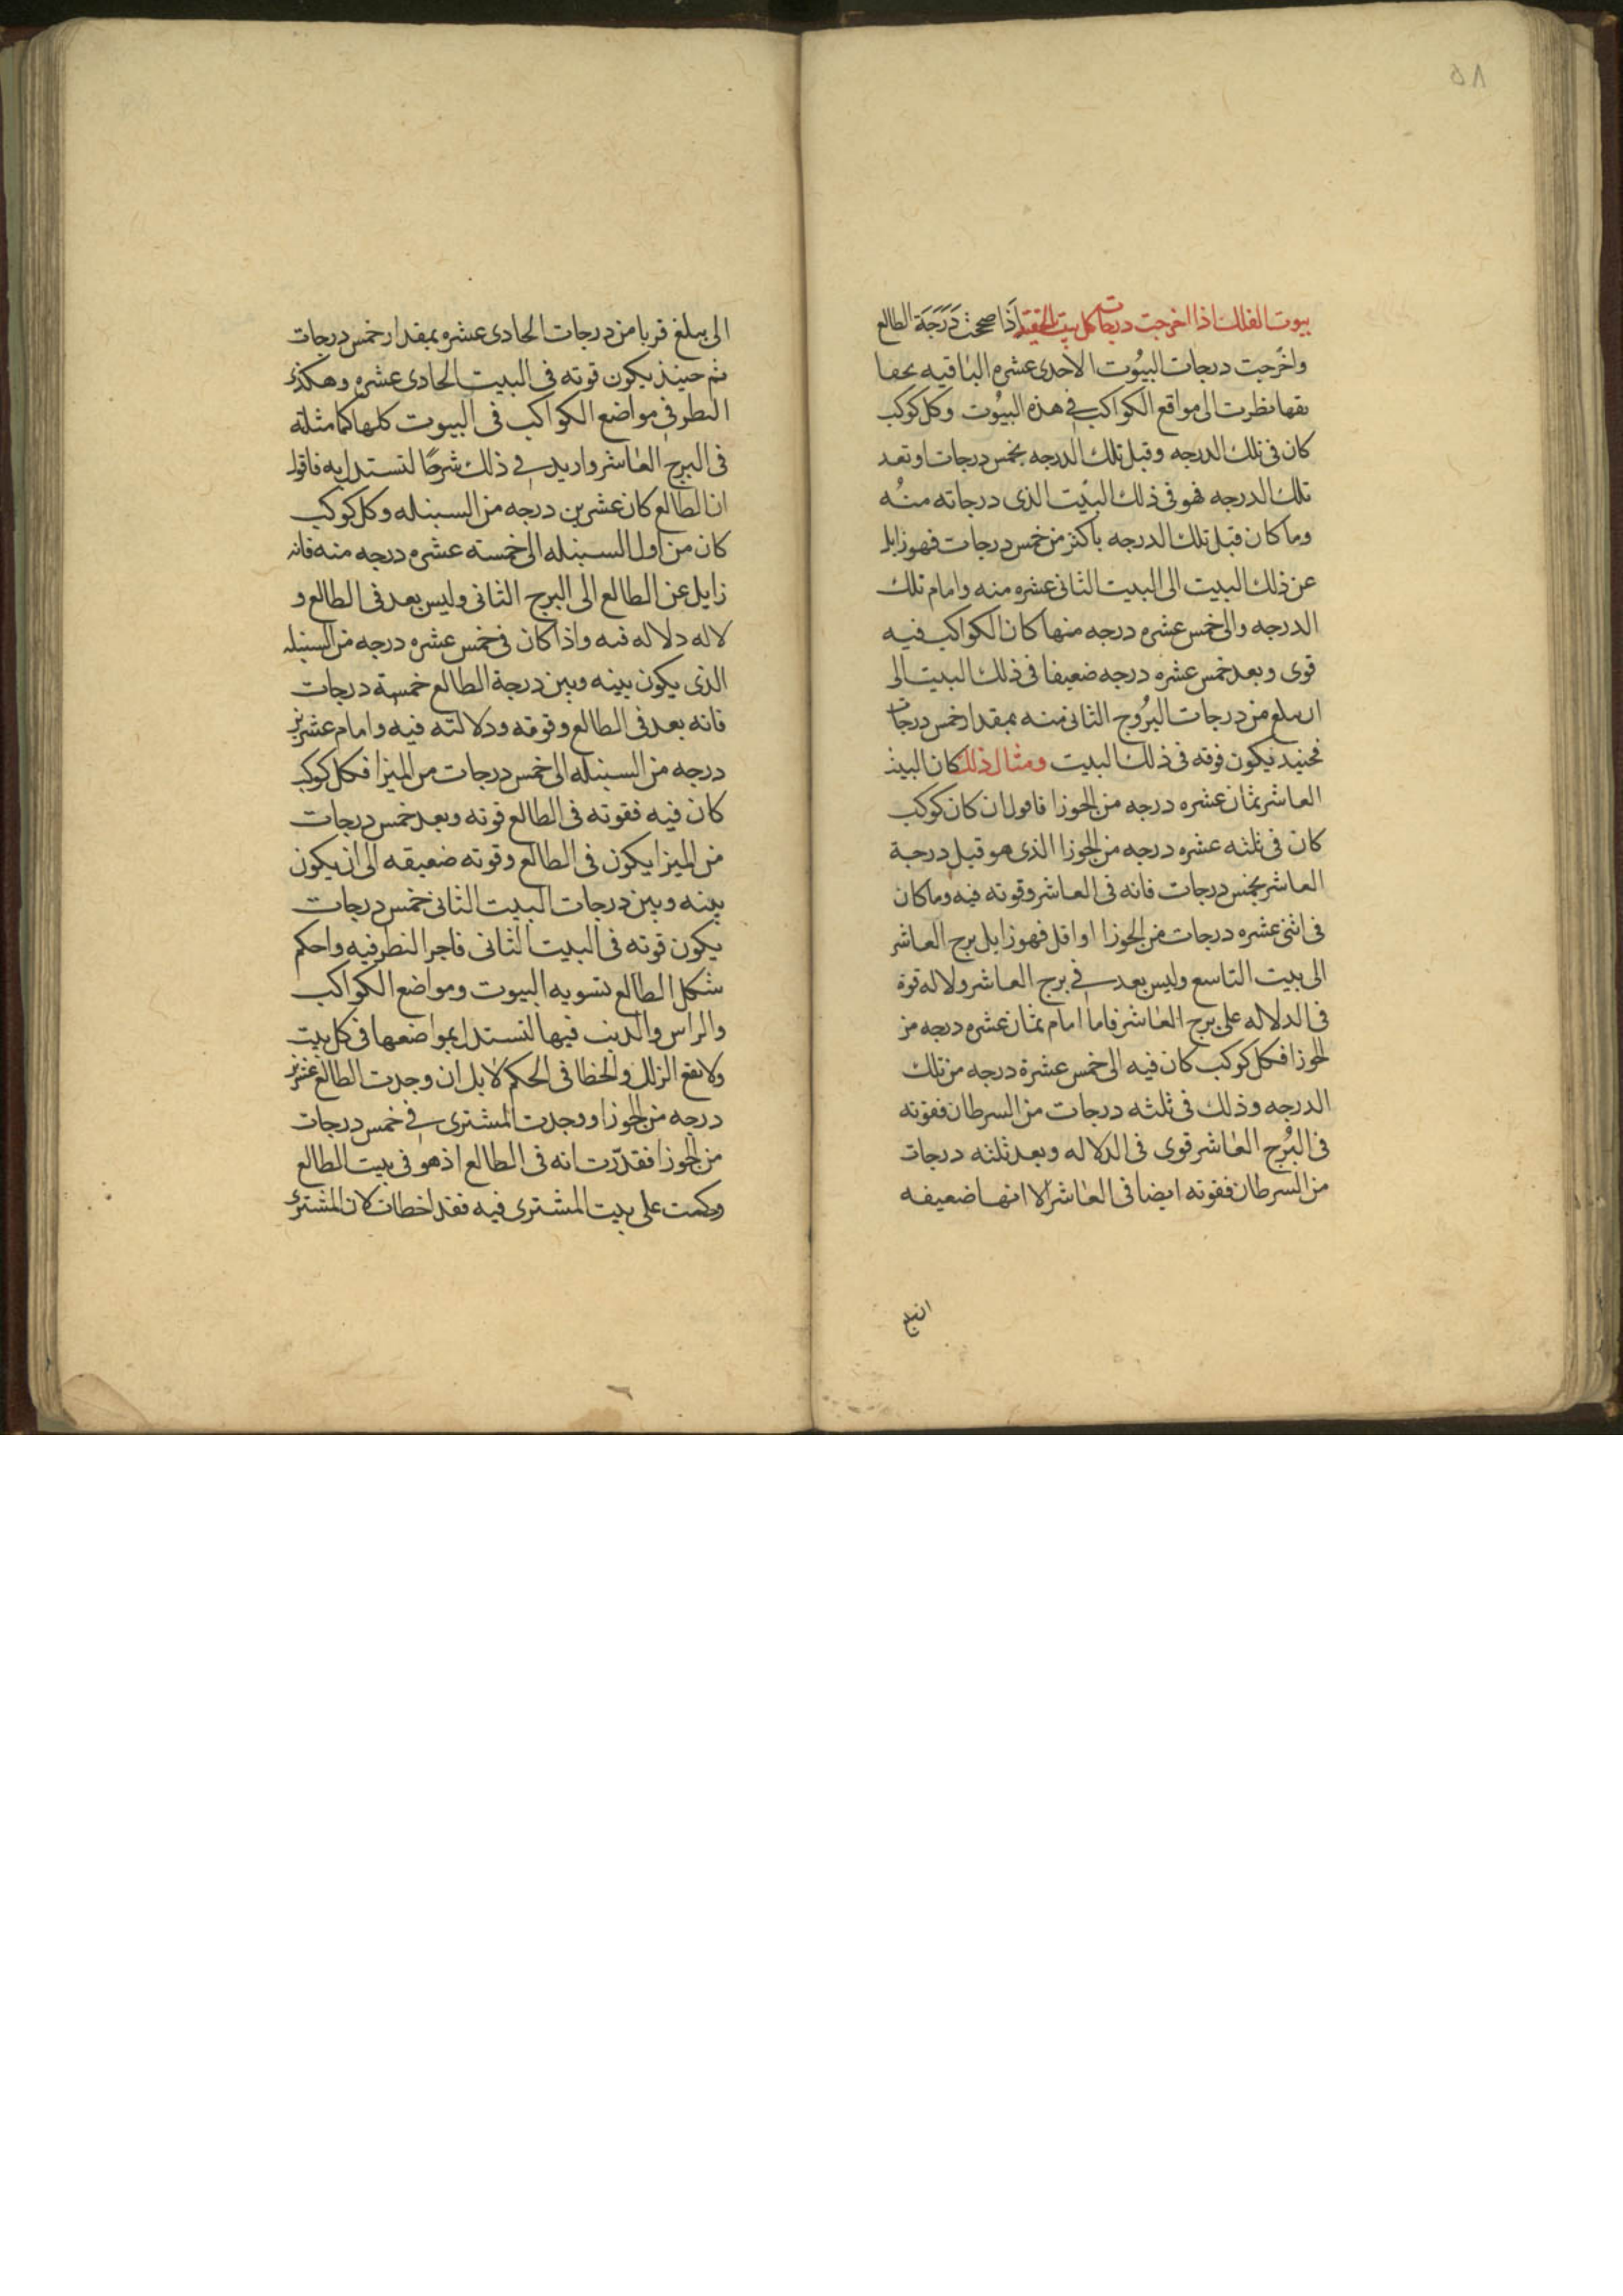 ٥٨
بيوت الفلك اذا اخرجت درجات كل بيت بالحقيقه اذَا صححت دَرَجَة الطالع
واخرجت درجات البيُوت الاحدى عشره الباقيه بحقا
ىقها نظرت الى مواقع الكواكب فى هذه البيُوت وكل كوكب
كان فى تلك الدرجه وقبل تلك الدرجه بخمس درجات او بعد
تلك الدرجه فهو فى ذلك البيت الذى درجاته منُه
وما كان قبل تلك الدرجه باكثر من خمس درجات فهو زايل
عن ذلك البيت الى البيت الثانى عشره منه وامام تلك
الدرجه والى خمس عشره درجه منها كان الكواكب فيه
قوى وبعد خمس عشره درجه ضعيفا فى ذلك البيت الى
ان ىبلغ من درجات البرُوج الثانى منه بمقدار خمس درجات
فحينيد يكون قوته فى ذلك البيت ومثال ذلك كان البيت
العاشر بثمان عشره درجه من الجوزا فاقول ان كان كوكب
كان فى ثلثه عشره درجه من الجوزا الذى هو قبل درجة
العاشر بخمس درجات فانه فى العاشر وقوته فيه وما كان
فى اثنى عشره درجات من الجوزا او اقل فهو زايل برج العاشر
الى بيت التاسع وليس بعد فى برج العاشر ولا له قوة
فى الدلاله على برج العاشر فاما امام بثمان عشره درجه من
الجوزا فكل كوكب كان فيه الى خمس عشرة درجه من تلك
الدرجه وذلك فى ثلثه درجات من السرطان فقوته
فى البُرج العاشر قوى فى الدلاله وبعد ثلثه درجات
من السرطان فقوته ايضا فى العاشر الا انها ضعيفه
الى يبلغ قربا من درجات الحادى عشره بمقدار خمس درجات
ثم حينيذ يكون قوته فى البيت الحادى عشره وهكذى
النطر فى مواضع الكواكب فى البيوت كلها كما مثلته
فى البرج العاشر واريد فى ذلك شرحًا لتستدل به فاقول
ان الطالع كان عشرين درجه من السنبله وكل كوكب
كان من اول السنبله الى خمسته عشره درجه منه فانه
زايل عن الطالع الى البرج الثانى وليس بعد فى الطالع و
لا له دلاله فيه واذا كان فى خمس عشره درجه من السنبله
الذى يكون بينه وبين درجة الطالع خمسة درجات
فانه بعد فى الطالع وقوته ودلالته فيه وامام عشرين
درجه من السنبله الى خمس درجات من الميزا فكل كوكب
كان فيه فقوته فى الطالع قوته وبعد خمس درجات
من الميزا يكون فى الطالع وقوته ضعيفه الى ان يكون
بينه وبين درجات البيت الثانى خمس درجات
يكون قوته فى البيت الثانى فاجر النظر فيه واحكم
شكل الطالع بتسويه البيوت ومواضع الكواكب
والراس والذنب فيها لتستدل بمواضعها فى كل بيت
ولا يقع الزلل والخطا فى الحكم لابل ان وجدت الطالع عشرين
درجه من الجوزا ووجدت المشترى فى خمس درجات
من الجوزا فقدّرت انه فى الطالع اذ هو فى بيت الطالع
وحكمت على بيت المشترى فيه فقد اخطات كان المشترى